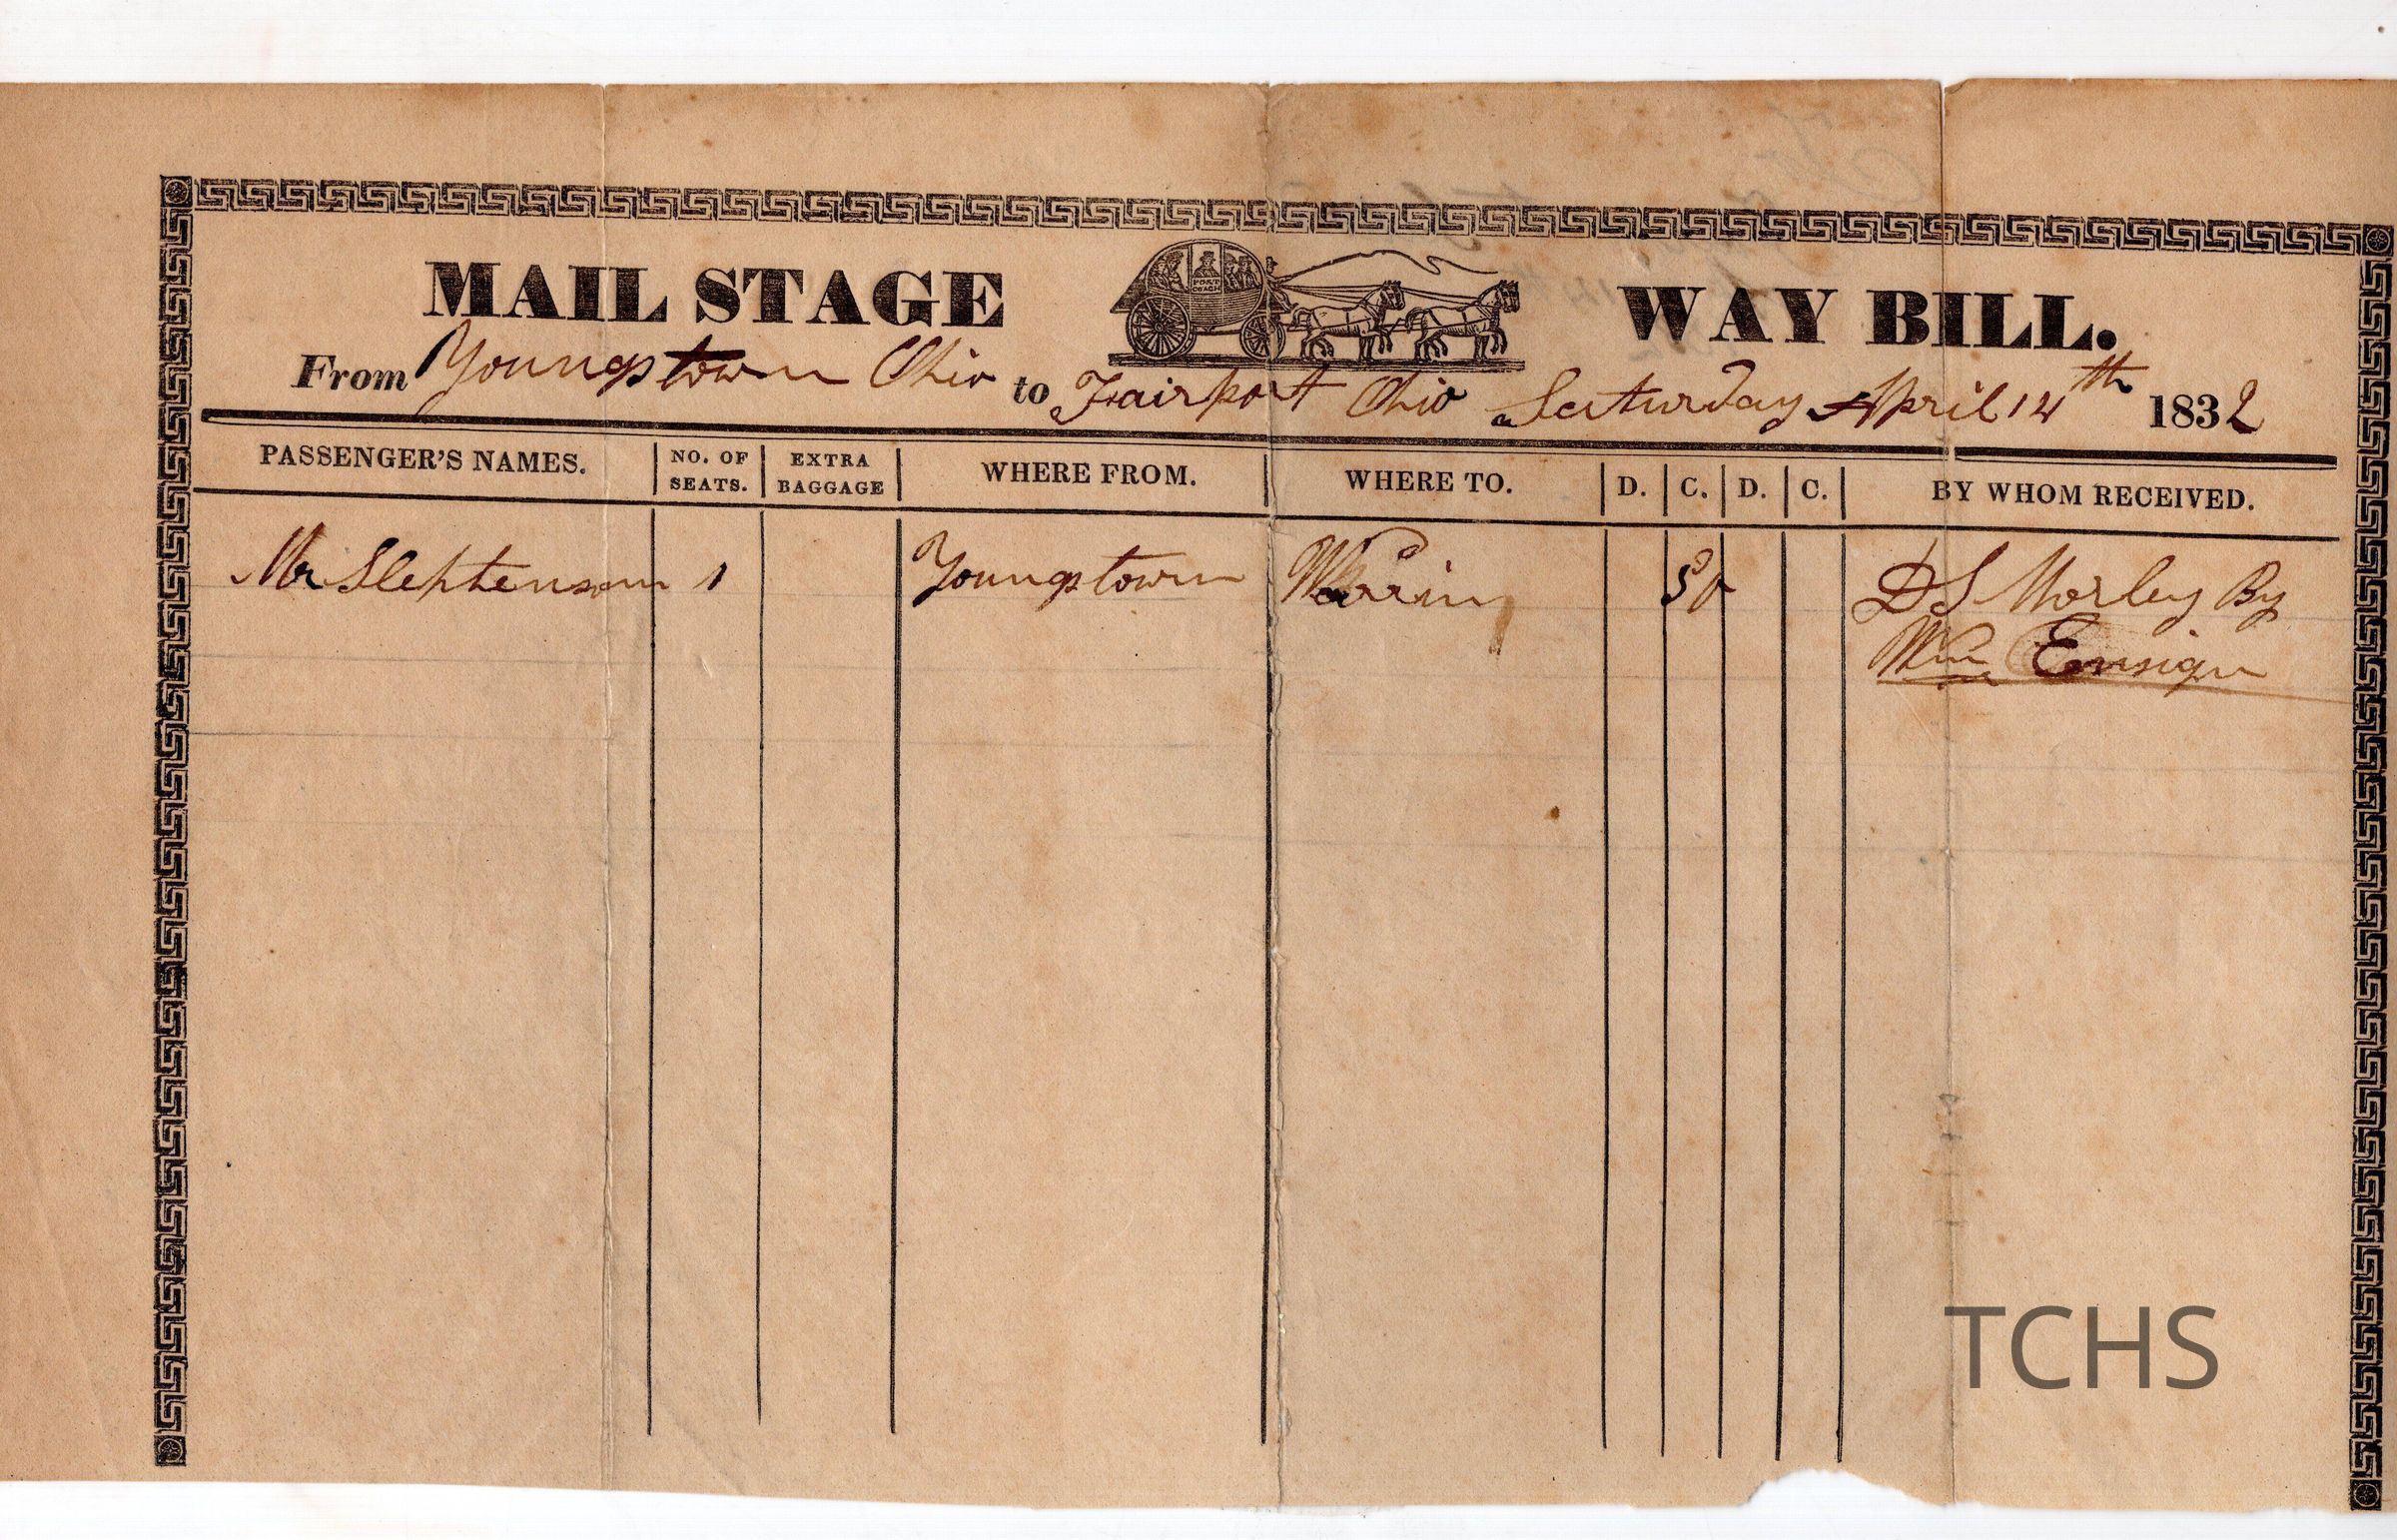 MAIL STAGE WAY BILL.
POST COACH
From Youngstown Ohio to Fairport Ohio Saturday April 14th 1832
PASSENGER'S NAMES. NO. OF SEATS. EXTRA BAGGAGE WHERE FROM. WHERE TO. D. C. D. C. BY WHOM RECEIVED.
Mr 1 Youngstown 50 D S Morley By
Wm Ensign
TCHS